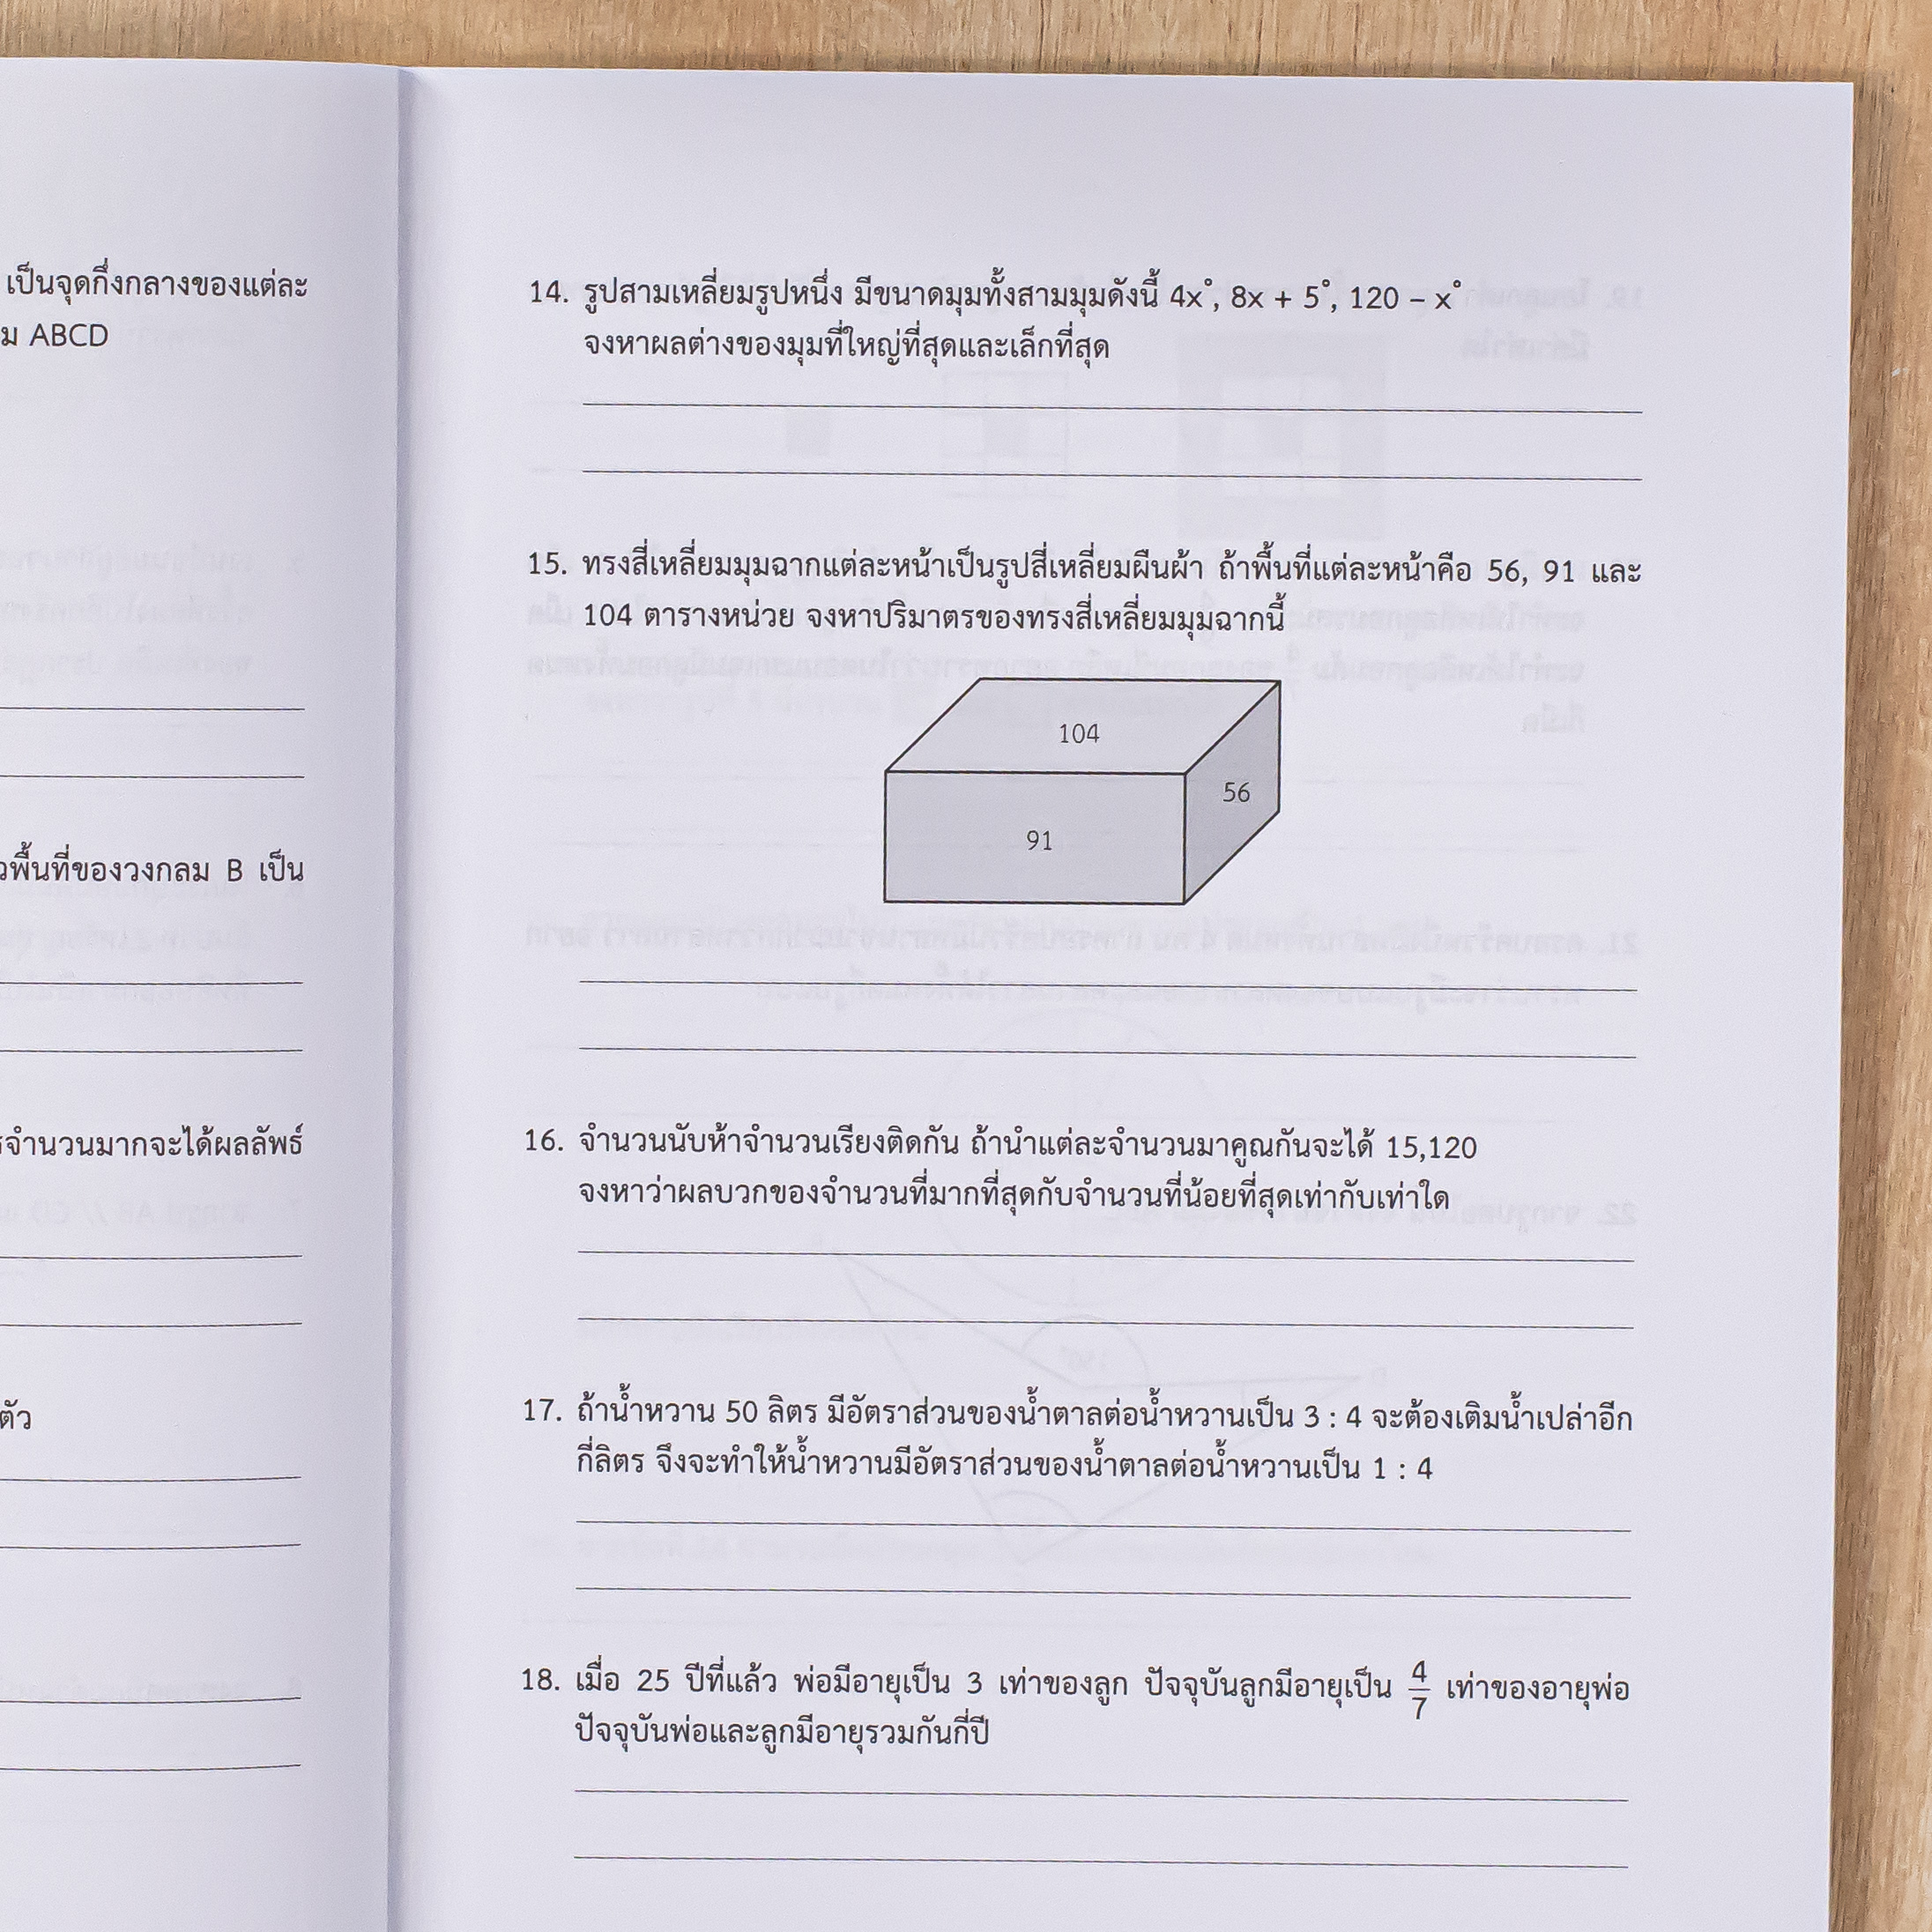 เป็นจุดกึ่งกลางของแต่ละ
ม ABCD
วพื้นที่ของวงกลม B เป็น
จำนวนมากจะได้ผลลัพธ์
ตัว
14. รูปสามเหลี่ยมรูปหนึ่ง มีขนาดมุมทั้งสามมุมดังนี้ 4x°, 8x + 5°, 120 – x°
จงหาผลต่างของมุมที่ใหญ่ที่สุดและเล็กที่สุด
15. ทรงสี่เหลี่ยมมุมฉากแต่ละหน้าเป็นรูปสี่เหลี่ยมผืนผ้า ถ้าพื้นที่แต่ละหน้าคือ 56, 91 และ
104 ตารางหน่วย จงหาปริมาตรของทรงสี่เหลี่ยมมุมฉากนี้
104
56
91
16. จำนวนนับห้าจำนวนเรียงติดกัน ถ้านำแต่ละจำนวนมาคูณกันจะได้ 15,120
จงหาว่าผลบวกของจำนวนที่มากที่สุดกับจำนวนที่น้อยที่สุดเท่ากับเท่าใด
17. ถ้าน้ำหวาน 50 ลิตร มีอัตราส่วนของน้ำตาลต่อน้ำหวานเป็น 3 : 4 จะต้องเติมน้ำเปล่าอีก
กี่ลิตร จึงจะทำให้น้ำหวานมีอัตราส่วนของน้ำตาลต่อน้ำหวานเป็น 1 : 4
18. เมื่อ 25 ปีที่แล้ว พ่อมีอายุเป็น 3 เท่าของลูก ปัจจุบันลูกมีอายุเป็น 4/7 เท่าของอายุพ่อ
ปัจจุบันพ่อและลูกมีอายุรวมกันกี่ปี